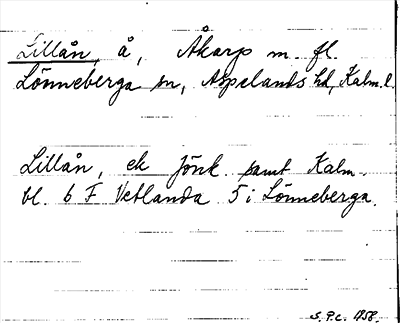 Lillån, å, Åkarp m. fl.
Lönneberga sn, Aspelands hd, Kalm. l.
Lillån, ek Jönk. samt Kalm.
bl. 6 F Vetlanda 5 i Lönneberga.
S. P. C. 1958.